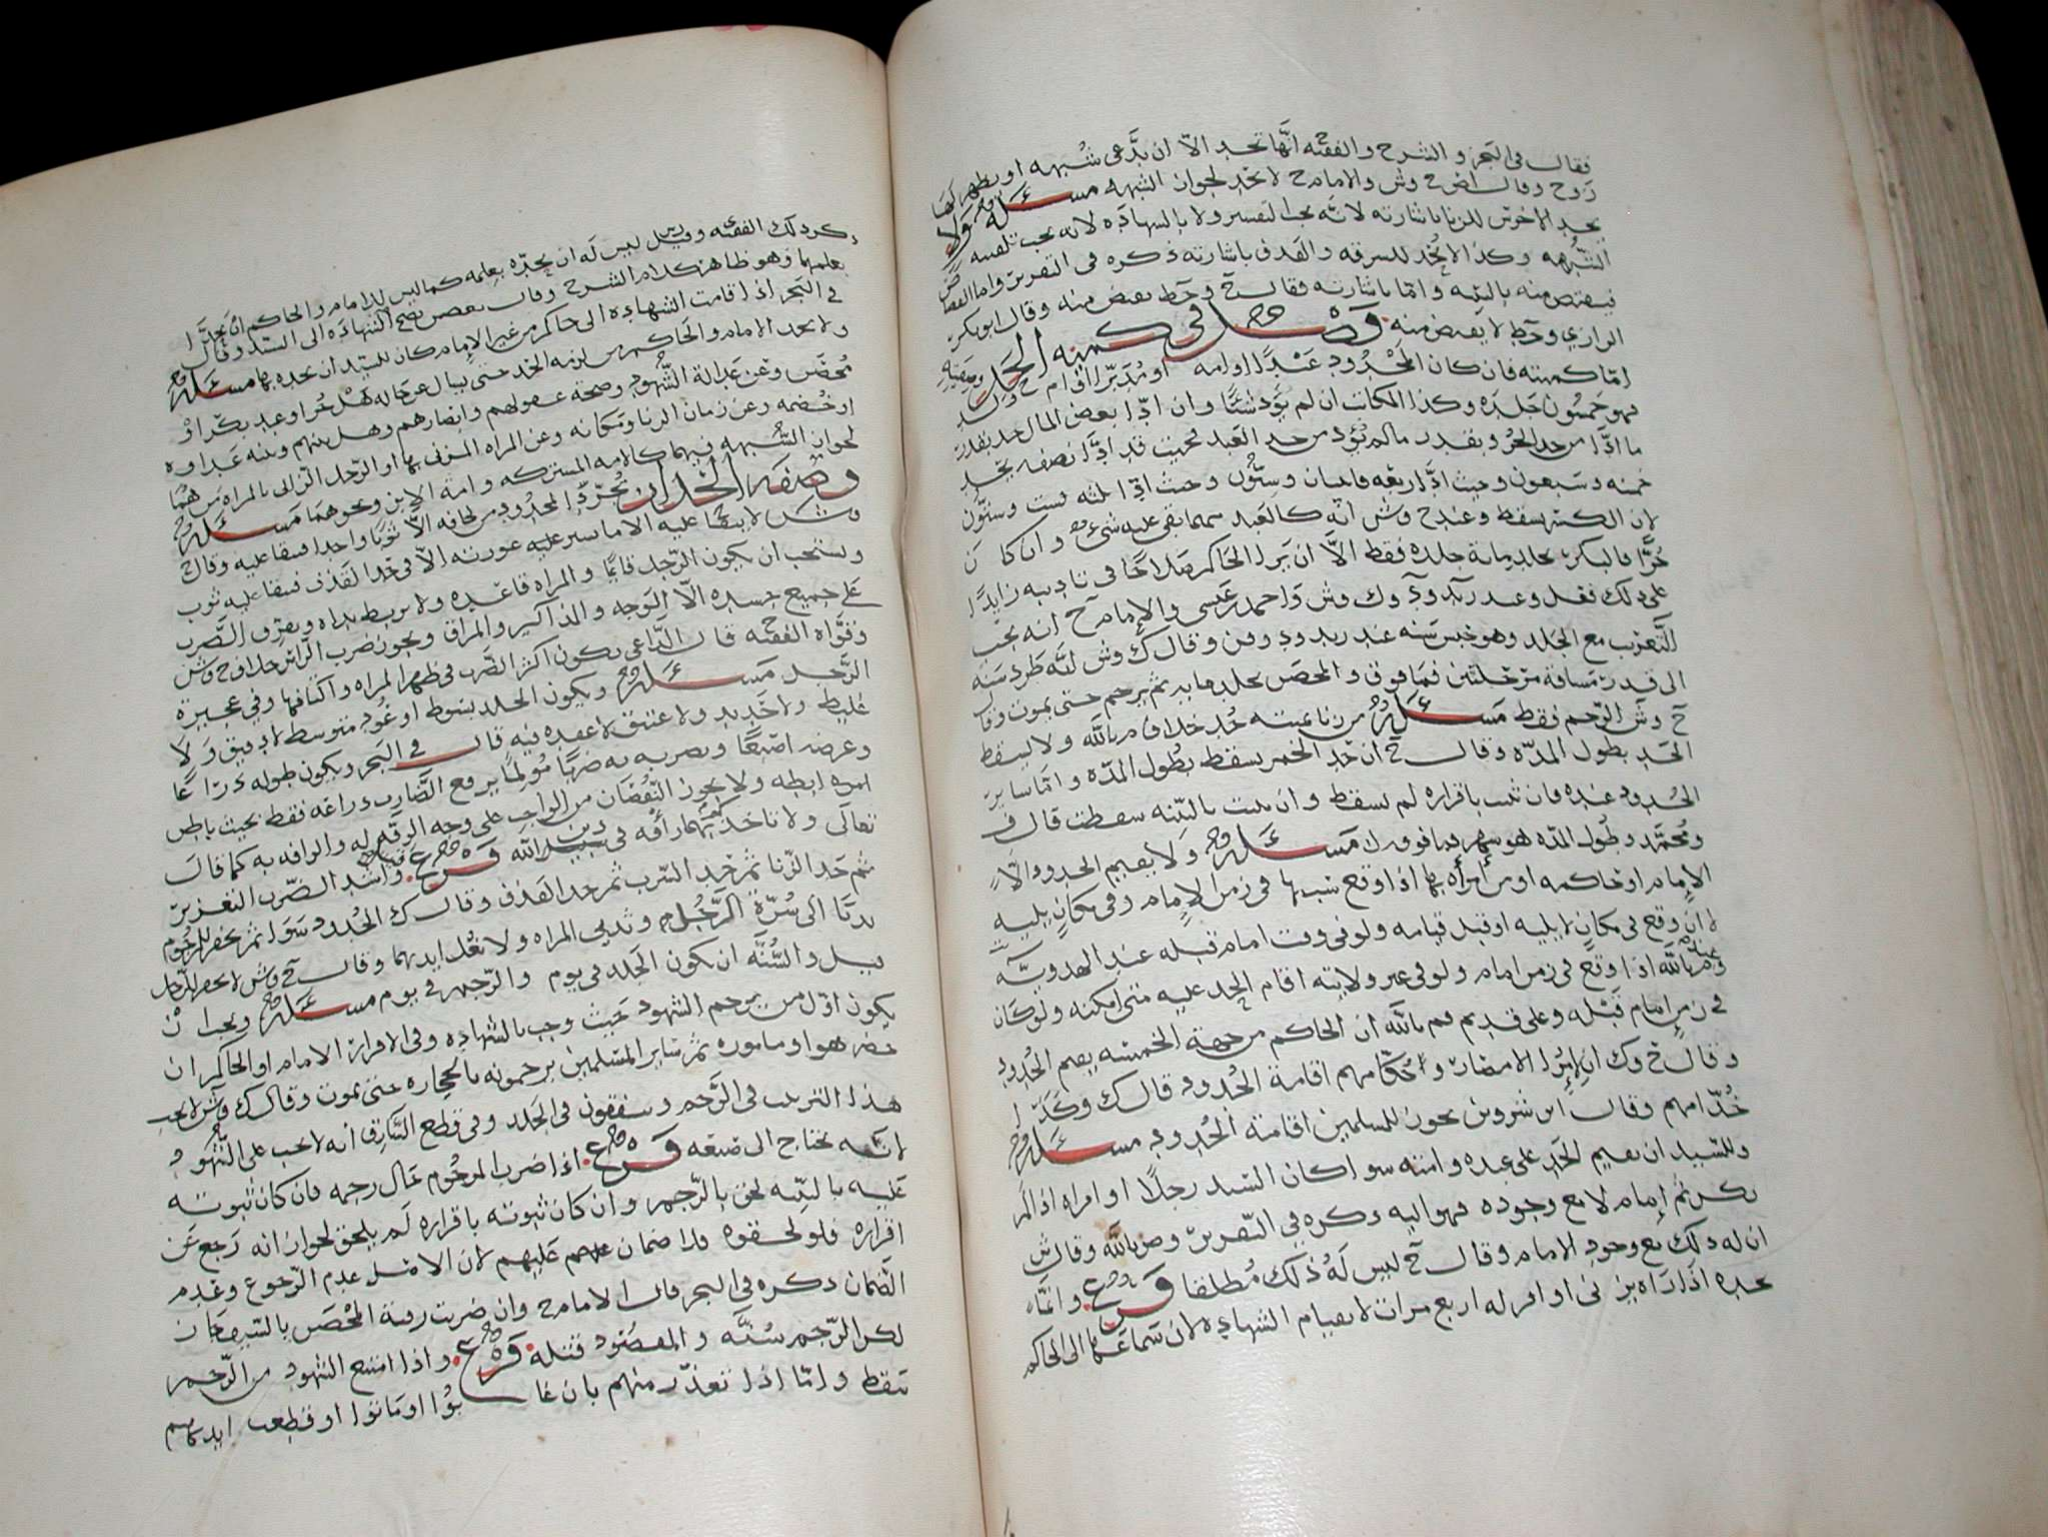 فقال في البحر و الشرح والفقيه انها تحد الا ان يدعى شبهه او يظهر لها
زوج وقال ض ح وش والامام ح لا تحد لجواز الشبهه مسئله ولا
يحد الاخرس للزنا باشارته لانه يجب التفسير ولا بالشهاده لانه يجب تلقينه
الشبهه وكذا لا يحد للسرقه والقذف باشارته ذكره في التقرير واما القصاص
فيقتص منه بالبينه واما باشارته فقال ح وحط يقتص منه وقال ابو بكر
الرازي وحط لا يقتص منه فصل في كميه الحد وصفته
اما كميته فان كان المحدود عبدًا او امه او مدبرا او ام ولد
فهو خمسون جلده وكذا المكاتب ان لم يؤد شيئًا وان ادا بعض المال حد بقدر
ما ادا من حد الحر وبقدر ما لم يؤد من حد العبد فحيث قد ادا نصفه يجلد
خمسه وسبعون وحيث ادا ربعه فاثنان وستون وحيث ادا ثلثه فست وستون
لان الكسر يسقط وعند ح وش انه كالعبد مهما بقي عليه شيء وان كان
حرًا فالبكر يجلد مايه جلده فقط الا ان يرا الحاكم صلاحًا في تاديبه زايدًا
على ذلك فعل وعند زيد وك وش واحمد بن عيسى والامام ح انه يجب
التغريب مع الجلد وهو حبس سنه عند زيد و وقال ك وش انه طرد سنه
الى قدر مسافة مرحلتين فما فوق والمحصن يجلد مايه ثم يرجم حتى يموت وقال
ح وش الرجم فقط مسئله من زنا بميته حد خلاف م بالله ولا يسقط
الحد بطول المده وقال ح ان حد الخمر يسقط بطول المده واما ساير
الحدود عنده فان ثبت باقراره لم يسقط وان ثبت بالبينه سقطت قال ف
ومحمد وطول المده هو شهر فما فوق مسئله ولا يقيم الحدود الا
الامام او حاكمه او من امراه بها اذا وقع سببها في زمن الامام وفي مكان يليه
لا ان وقع في مكان لا يليه او قبل قيامه ولو في وقت امام قبله عند الهدويه
وعند م بالله اذا وقع في زمن امام ولو في غير ولايته اقام الحد عليه متى امكنه ولو كان
في زمن امام قبله وعلى قديم م بالله ان الحاكم من جهة الخمسه يقيم الحدود
وقال ح وك ان لامرا الامصار وحكامهم اقامة الحدود قال ك وكذا
خدامهم وقال ابن شروين يجوز للمسلمين اقامة الحدود مسئله
وللسيد ان يقيم الحد على عبده وامته سوا كان السيد رجلًا او امراه اذا لم
يكن ثم امام لا مع وجوده فهو اليه ذكره في التقرير و م بالله وقال ش
ان له ذلك مع وجود الامام وقال ح ليس له ذلك مطلقا فرع وانما
يحده اذا راه يزني او اقر له اربع مرات لا بقيام الشهاده لان سماعها الى الحاكم
ذكر ذلك الفقيه وقيل ليس له ان يحده بعلمه كما ليس للامام والحاكم ان يحدا
بعلمهما وهو ظاهر كلام الشرح وقال بعض تصح الشهاده الى السيد وقال
في البحر اذا قامت الشهاده الى حاكم من غير الامام كان للسيد ان يحده بها مسئله
ولا يحد الامام والحاكم من لزمه الحد حتى يسال عن حاله هل حر او عبد بكر او
محصن وعن عدالة الشهود وصحة عقولهم وابصارهم وهل بينهم وبينه عداوه
او خصمه وعن زمان الزنا ومكانه وعن المراه المزني بها او الرجل الزاني بالمراه من هما
لجواز الشبهه فيهما كالامه المشتركه وامة الابن ونحوهما مسئله
وصفه الحد ان يجرد المحدود من لحافه الا ثوبًا واحدا فيبقا عليه وقال ح
وش لا يبقا عليه الا ما يستر عليه عورته الا في حد القذف فيبقا عليه ثوب
ويستحب ان يكون الرجل قايمًا والمراه قاعده ولا يربط يداه ويفرق الضرب
على جميع جسده الا الوجه والمذاكير والمراق ويجوز ضرب الراس خلاف ح وش
وقواه الفقيه ح قال الداعي يكون اكثر الضرب في ظهر المراه واكتافها وفي عجيزة
الرجل مسئله ويكون الجلد بسوط او عود متوسط لا دقيق ولا
غليظ ولا جديد ولا عتيق لا عقده فيه قال في البحر ويكون طوله ذراعًا
وعرضه اصبعًا ويضرب به ضربًا مولمًا يرفع الضارب ذراعه فقط بحيث باطن
ابطه ولا يجوز النقصان من الواجب على وجه الرقه له والرافه به كما قال
تعالى ولا تاخذكم بهما رافه في دين الله فرع واشد الضرب التعزير
ثم حد الزنا ثم حد الشرب ثم حد القذف وقال ك الحدود سوا ثم يحفر للمرجوم
ندبًا الى سرة الرجل وثديي المراه ولا تغل ايديهما وقال ح وش لا يحفر للرجل
قيل والسنه ان يكون الجلد في يوم والرجم في يوم مسئله ويجب ان
يكون اول من يرجم الشهود حيث وجب بالشهاده وفي الاقرار الامام او الحاكم ان
حضر هو او ماموره ثم ساير المسلمين يرجمونه بالحجاره حتى يموت وقال ك وش لا يجب
هذا الترتيب في الرجم ويتفقون في الجلد وفي قطع السارق انه لا يجب على الشهود
لانه يحتاج الى صنعه فرع اذا هرب المرجوم حال رجمه فان كان ثبوته
عليه بالبينه لحق بالرجم وان كان ثبوته باقراره لم يلحق لجواز انه رجع عن
اقراره فلو لحقوه فلا ضمان عليهم لان الاصل عدم الرجوع وعدم
الضمان ذكره في البحر قال الامام ح وان ضربت رقبة المحصن بالسيف جاز
لكن الرجم سنه والمقصود قتله فرع واذا امتنع الشهود من الرجم
سقط واما اذا تعذر منهم بان غابوا او ماتوا او قطعت ايديهم